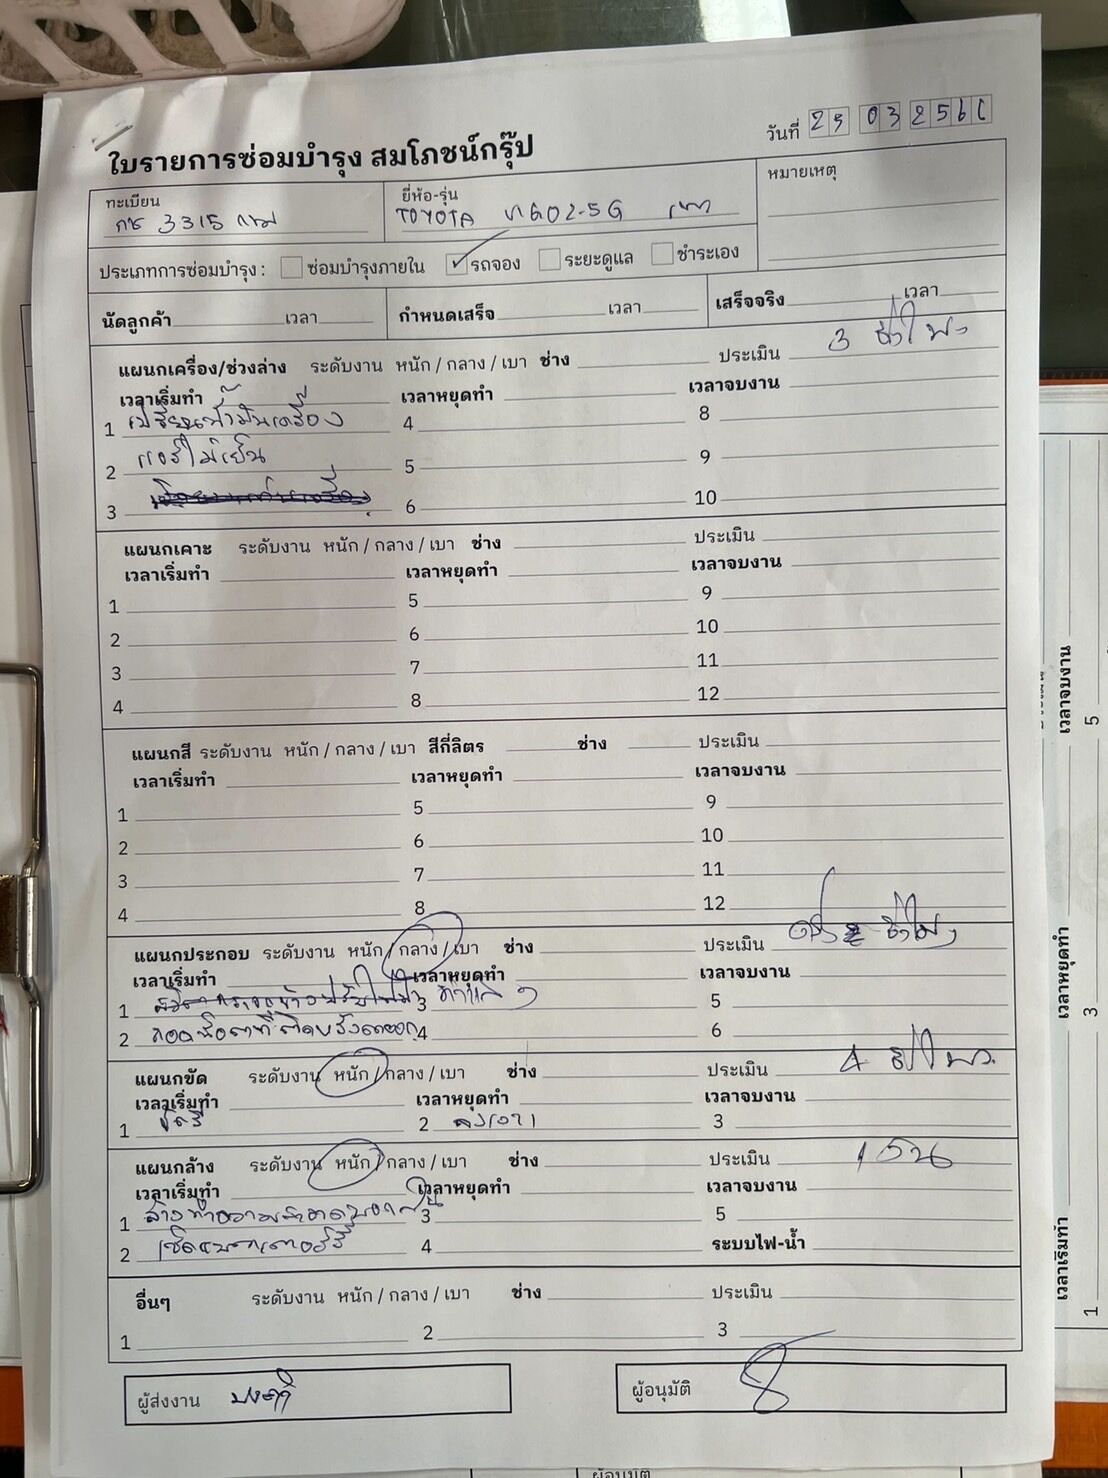 วันที่ 25 03 256
ใบรายการซ่อมบำรุง สมโภชน์กรุ๊ป
หมายเหตุ
ทะเบียน
กช 3315 กม
ยี่ห้อ-รุ่น
TOYOTA 2.5G เทา
ประเภทการซ่อมบำรุง : ซ่อมบำรุงภายใน รถจอง ระยะดูแล ชำระเอง
นัดลูกค้า เวลา กำหนดเสร็จ เวลา เสร็จจริง เวลา
แผนกเครื่อง/ช่วงล่าง ระดับงาน หนัก / กลาง / เบา ช่าง ประเมิน 3 ชั่วโมง
เวลาเริ่มทำ เวลาหยุดทำ เวลาจบงาน
1 เปลี่ยนน้ำมันเครื่อง 4 8
2 แอร์ไม่เย็น 5 9
3 6 10
แผนกเคาะ ระดับงาน หนัก / กลาง / เบา ช่าง ประเมิน
เวลาเริ่มทำ เวลาหยุดทำ เวลาจบงาน
1 5 9
2 6 10
3 7 11
4 8 12
แผนกสี ระดับงาน หนัก / กลาง / เบา สีกี่ลิตร ช่าง ประเมิน
เวลาเริ่มทำ เวลาหยุดทำ เวลาจบงาน
1 5 9
2 6 10
3 7 11
4 8 12
แผนกประกอบ ระดับงาน หนัก / กลาง / เบา ช่าง ประเมิน ชั่วโมง
เวลาเริ่มทำ เวลาหยุดทำ เวลาจบงาน
1 3 5
2 4 6
แผนกขัด ระดับงาน หนัก / กลาง / เบา ช่าง ประเมิน 4 ชั่วโมง
เวลาเริ่มทำ เวลาหยุดทำ เวลาจบงาน
1 ขัดสี 2 ลงเงา 3
แผนกล้าง ระดับงาน หนัก / กลาง / เบา ช่าง ประเมิน 1 วัน
เวลาเริ่มทำ เวลาหยุดทำ เวลาจบงาน
1 ล้างทำความสะอาด 3 5
2 เช็คแบตเตอร์รี่ 4 ระบบไฟ-น้ำ
อื่นๆ ระดับงาน หนัก / กลาง / เบา ช่าง ประเมิน
1 2 3
ผู้ส่งงาน
ผู้อนุมัติ
เวลาเริ่มทำ เวลาหยุดทำ เวลาจบงาน
1 3 5
ผู้อนุมัติ